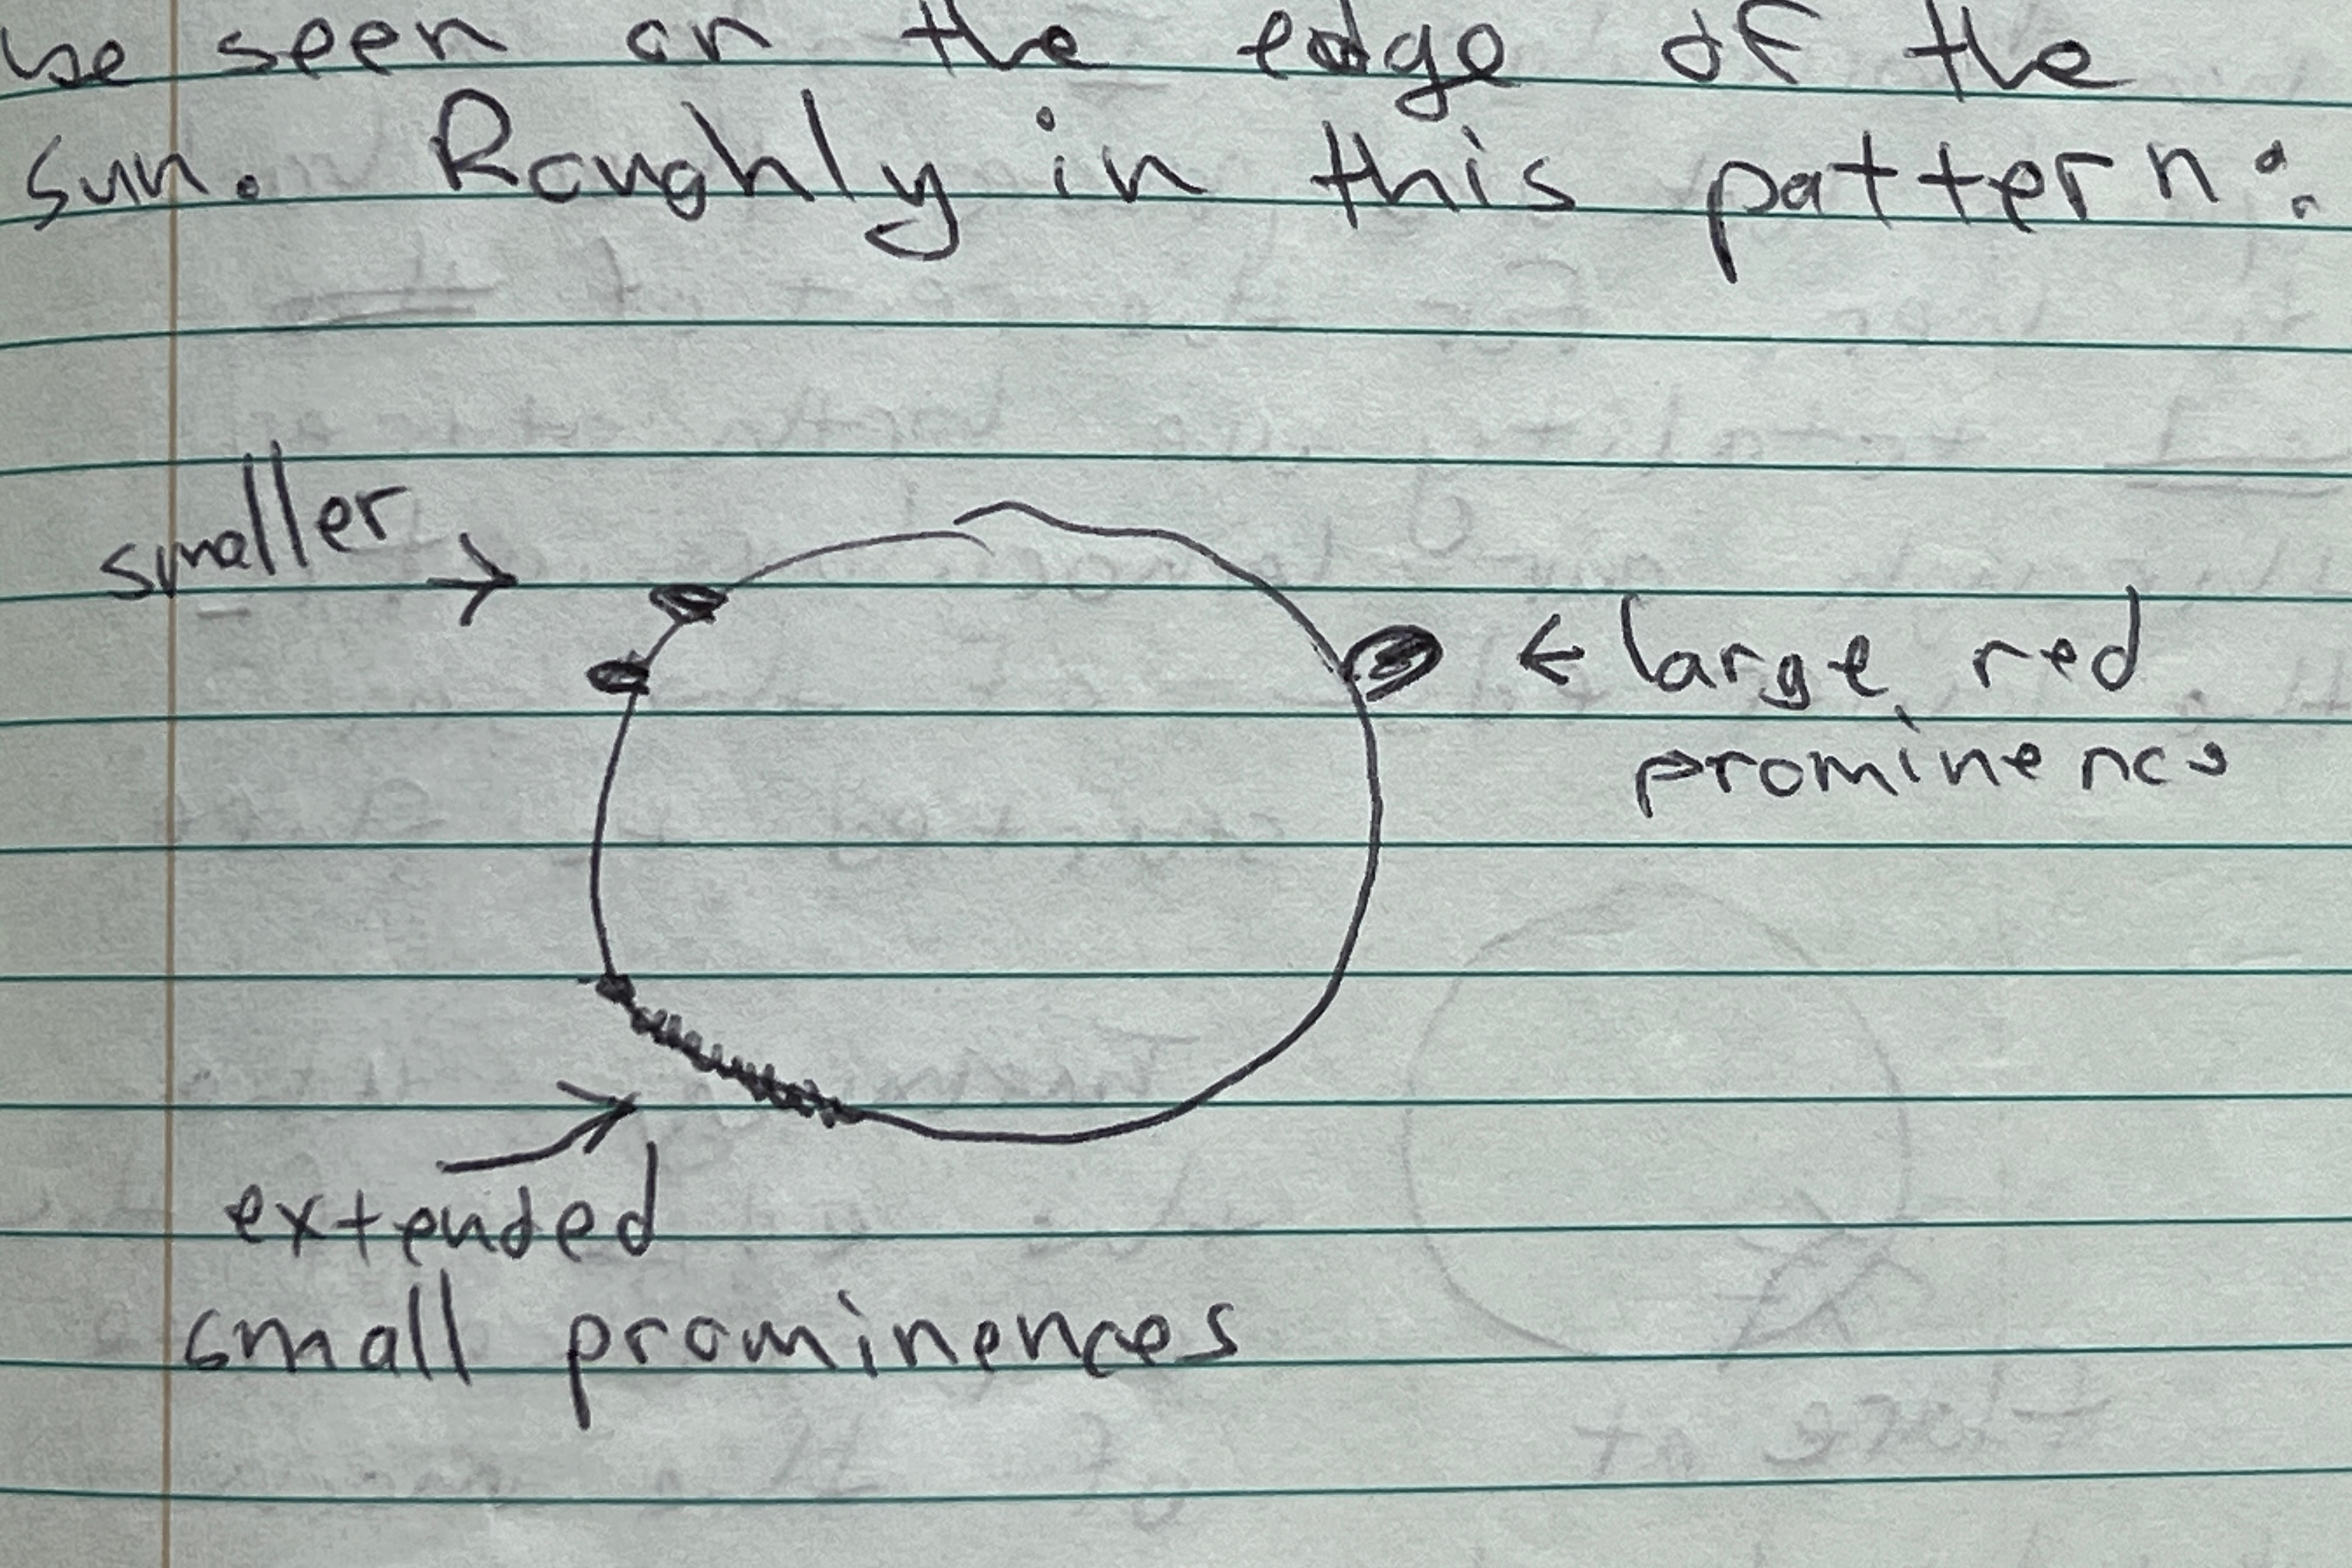 be seen on the edge of the
sun. Roughly in this pattern:
smaller →
← large, red
prominence
extended
small prominences